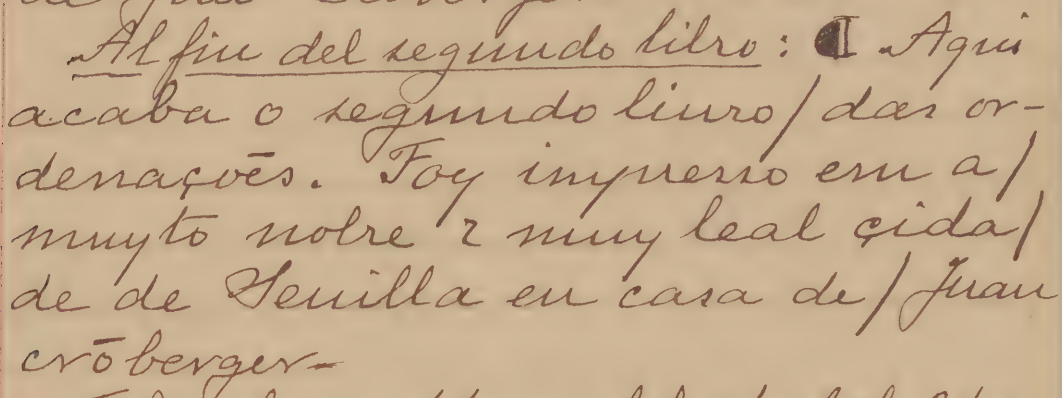 Al fin del segundo libro: ¶ Aqui
acaba o segundo liuro/das or-
denaçoẽs. Foy impresso em a/
muyto nobre ⁊ muy leal çida/
de de Seuilla en casa de/Juan
crōberger-